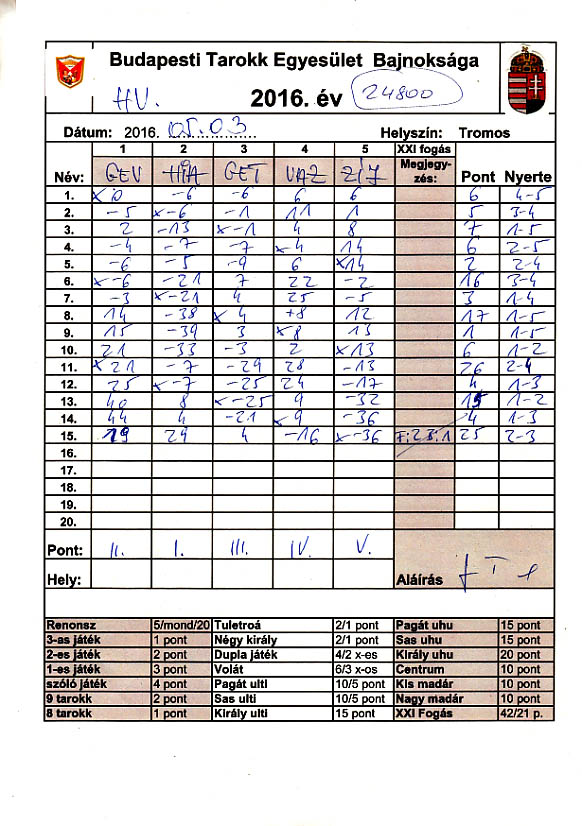 Budapesti Tarokk Egyesület Bajnoksága
HV. 2016. év 24800
Dátum: 2016. 05.03 Helyszín: Tromos
1 2 3 4 5 XXI fogás
Név: GEV HIA GET VAZ ZIJ Megjegyzés: Pont Nyerte
1. x 0 -6 -6 6 6 6 4-5
2. -5 x-6 -1 11 1 5 3-4
3. 2 -13 x-1 4 8 7 1-5
4. -4 -7 -7 x4 14 6 2-5
5. -6 -5 -9 6 x14 2 2-4
6. x-6 -21 7 22 -2 16 3-4
7. -3 x-21 4 25 -5 3 1-4
8. 14 -38 x4 +8 12 17 1-5
9. 15 -39 3 x8 13 1 1-5
10. 21 -33 -3 2 x13 6 1-2
11. x21 -7 -29 28 -13 26 2-4
12. 25 x-7 -25 24 -17 4 1-3
13. 40 8 x-25 9 -32 15 1-2
14. 44 4 -21 x9 -36 4 1-3
15. 19 29 4 -16 x-36 F:23:1 25 2-3
16.
17.
18.
19.
20.
Pont: II. I. III. IV. V.
Hely: Aláírás
Renonsz 5/mond/20 Tuletroá 2/1 pont Pagát uhu 15 pont
3-as játék 1 pont Négy király 2/1 pont Sas uhu 15 pont
2-es játék 2 pont Dupla játék 4/2 x-es Király uhu 20 pont
1-es játék 3 pont Volát 6/3 x-os Centrum 10 pont
szóló játék 4 pont Pagát ulti 10/5 pont Kis madár 10 pont
9 tarokk 2 pont Sas ulti 10/5 pont Nagy madár 10 pont
8 tarokk 1 pont Király ulti 15 pont XXI Fogás 42/21 p.